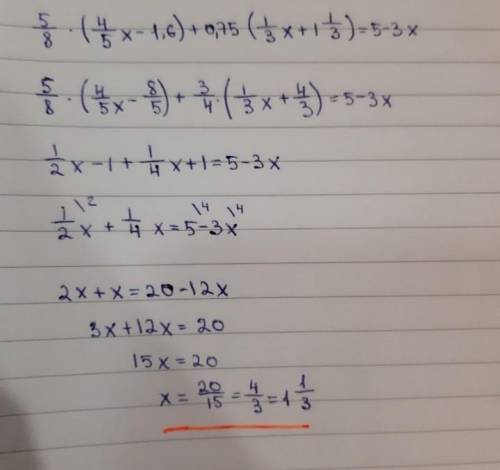 5/8 · (4/5 x - 1,6) + 0,75 (1/3 x + 1 1/3) = 5 - 3x
5/8 · (4/5 x - 8/5) + 3/4 · (1/3 x + 4/3) = 5 - 3x
1/2 x - 1 + 1/4 x + 1 = 5 - 3x
1/2 \2 x + 1/4 x = 5 \4 - 3x \4
2x + x = 20 - 12x
3x + 12x = 20
15x = 20
x = 20/15 = 4/3 = 1 1/3